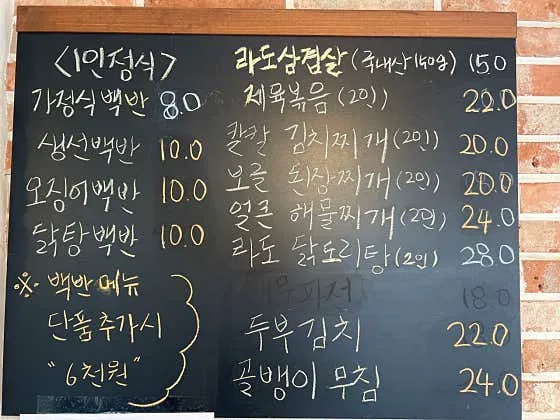 <1인정식>
가정식백반 8.0
생선백반 10.0
오징어백반 10.0
닭탕백반 10.0
※ 백반메뉴
단품추가시
"6천원"
라도삼겹살 (국내산 140g) 15.0
제육볶음 (2인) 22.0
칼칼 김치찌개 (2인) 20.0
보글 된장찌개 (2인) 20.0
얼큰 해물찌개 (2인) 24.0
라도 닭도리탕 (2인) 28.0
18.0
두부김치 22.0
골뱅이무침 24.0